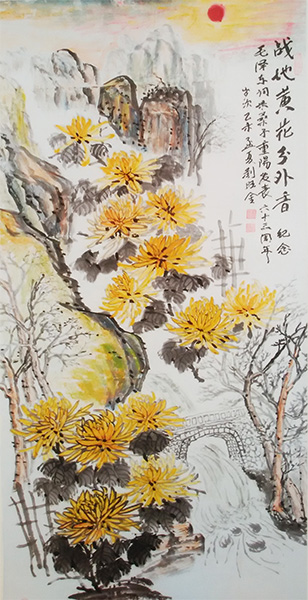 战地黄花分外香 纪念
毛泽东词采桑子重阳发表八十三周年
岁次己亥孟夏刘金